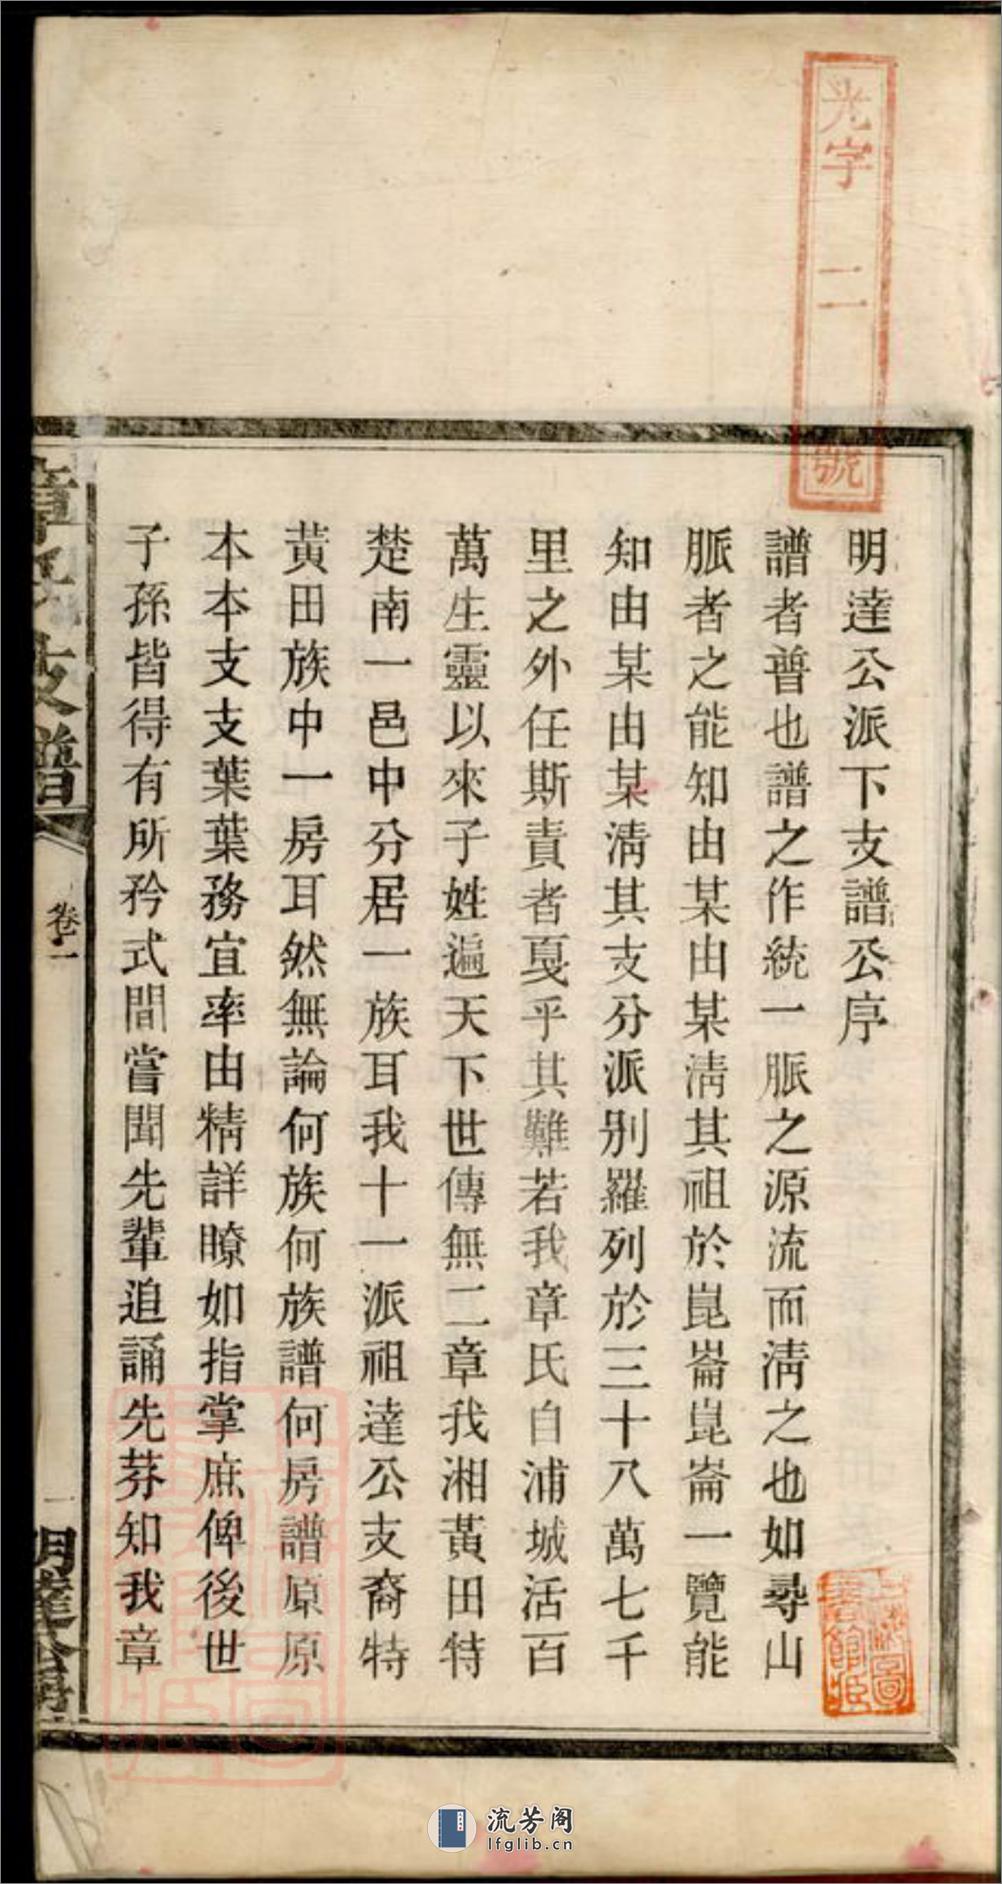 光字 二 號
明達公派下支譜公序
譜者普也譜之作統一脈之源流而淸之也如尋山
脈者之能知由某由某淸其祖於崑崙崑崙一覽能
知由某由某淸其支分派別羅列於三十八萬七千
里之外任斯責者戛乎其難若我章氏自浦城活百
萬生靈以來子姓遍天下世傳無二章我湘黃田特
楚南一邑中分居一族耳我十一派祖達公支裔特
黃田族中一房耳然無論何族何族譜何房譜原原
本本支支葉葉務宜率由精詳瞭如指掌庶俾後世
子孫皆得有所矜式間嘗聞先輩追誦先芬知我章
章氏支譜
卷二
一
明達公房
上海圖書館藏
流芳阁
lfglib.cn